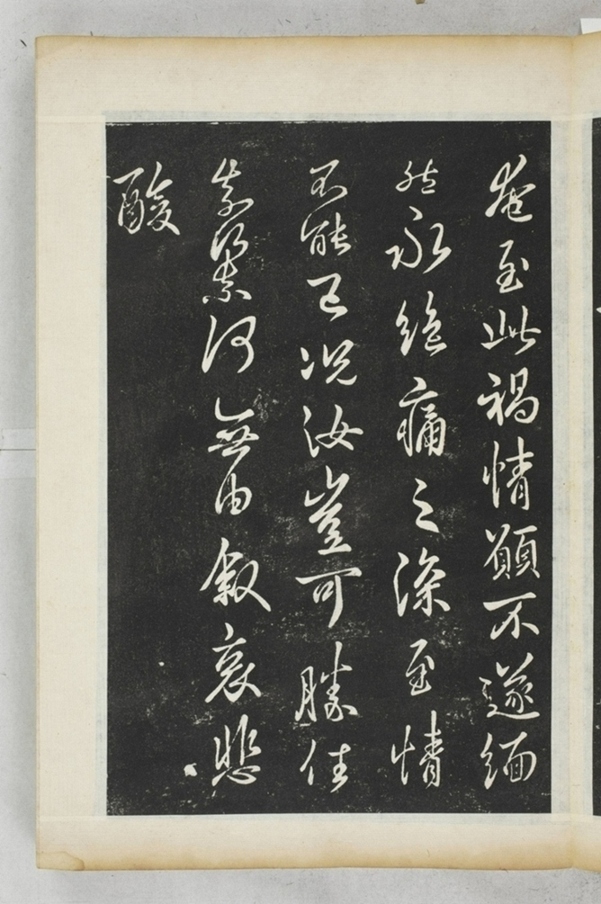 奄至此禍情願不遂緬
然永絕痛之深至情
不能已況汝豈可勝任
奈何奈何無由叙哀悲
酸